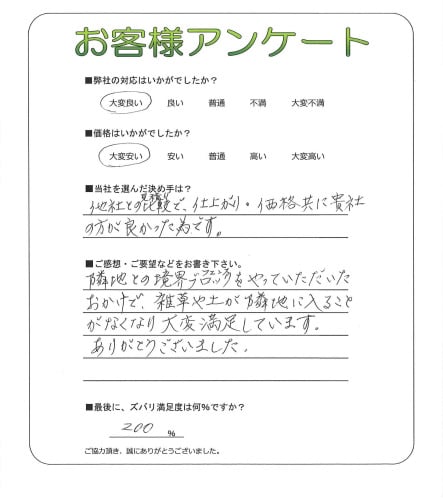 お客様アンケート
■弊社の対応はいかがでしたか?
大変良い 良い 普通 不満 大変不満
■価格はいかがでしたか?
大変安い 安い 普通 高い 大変高い
■当社を選んだ決め手は?
見積り
他社との比較で、仕上がり・価格共に貴社
の方が良かった為です。
■ご感想・ご要望などをお書き下さい。
隣地との境界ブロックをやっていただいた
おかげで、雑草や土が隣地に入ること
がなくなり大変満足しています。
ありがとうございました。
■最後に、ズバリ満足度は何%ですか?
200 %
ご協力頂き、誠にありがとうございました。